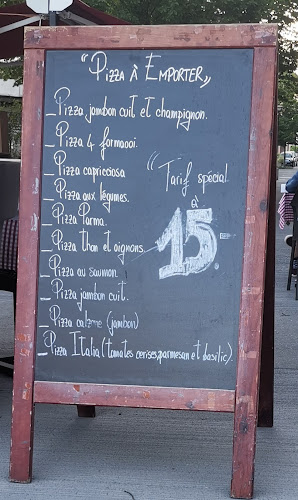 "Pizza à Emporter"
_Pizza jambon cuit et champignon.
_Pizza 4 formaggi.
_Pizza capricciosa
_Pizza aux légumes.
_Pizza Parma.
_Pizza thon et oignons.
_Pizza au saumon.
_Pizza jambon cuit.
_Pizza calzone (jambon)
_Pizza Italia (tomates cerises, parmesan et basilic).
"Tarif spécial
à
15.-